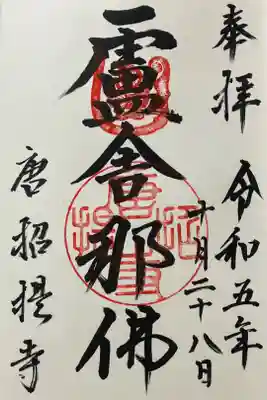 奉拝
令和五年
十月二十八日
盧舎那佛
唐招提寺